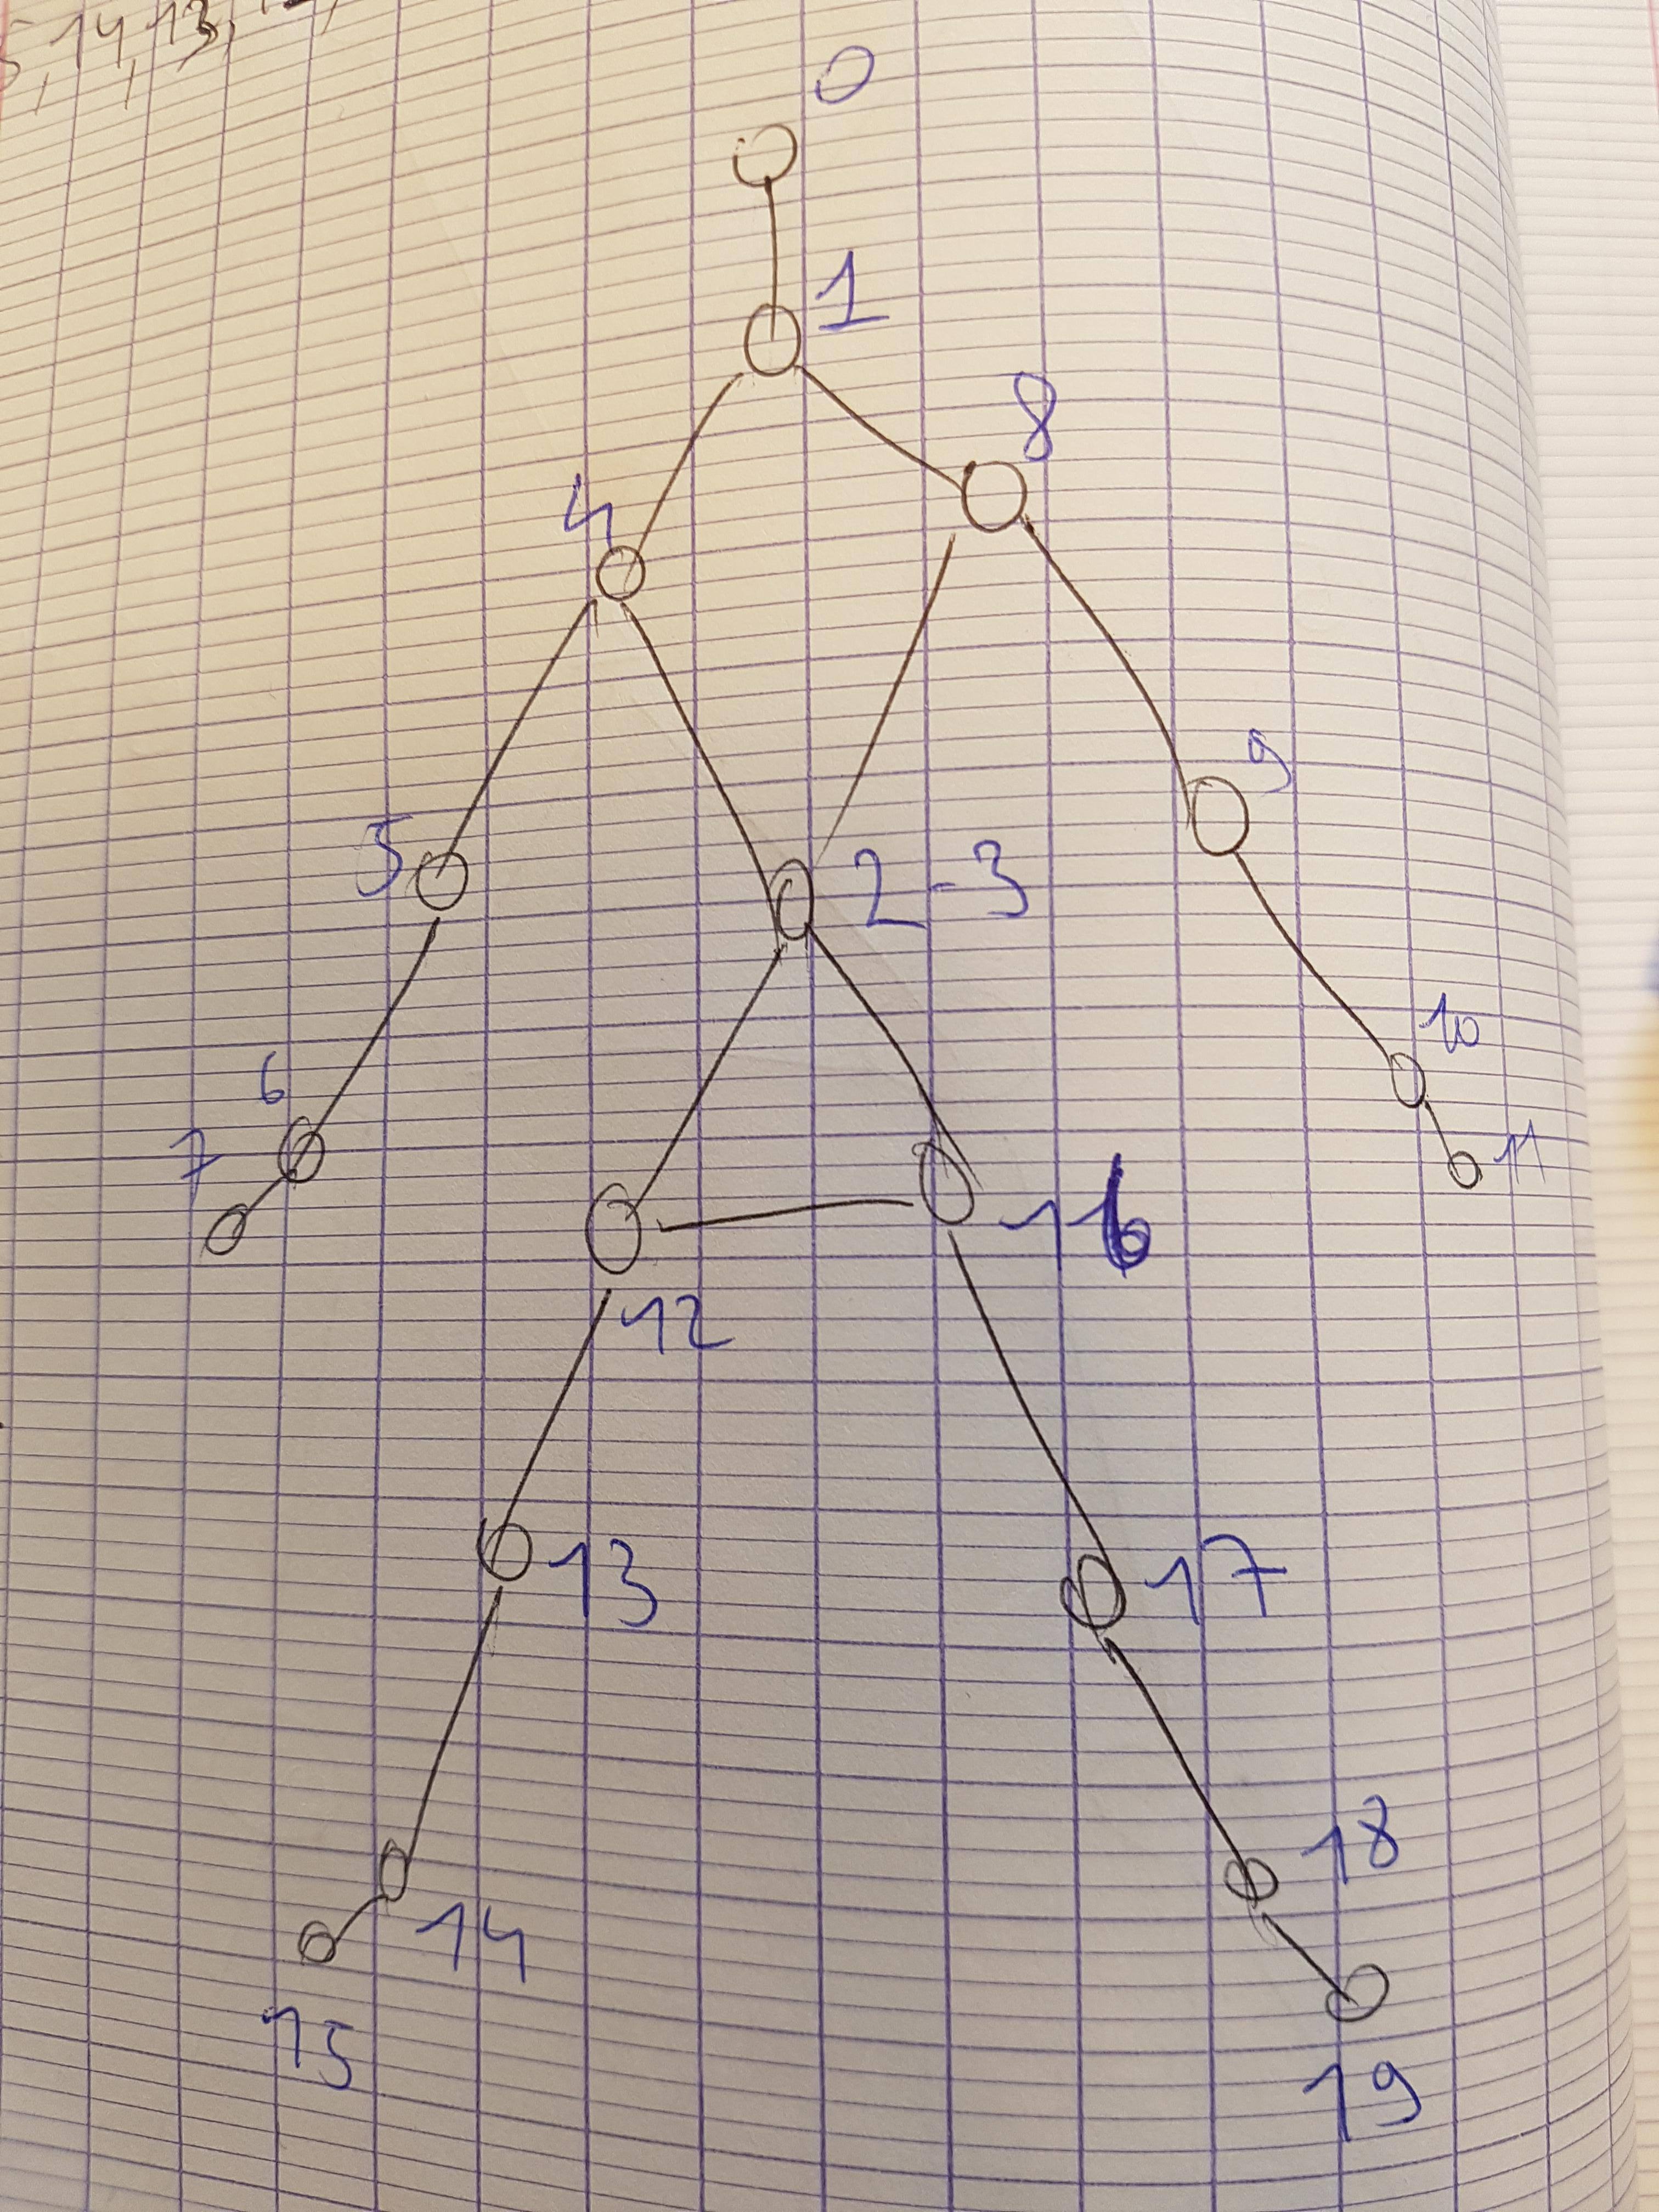 14, 13,
0
1
8
4
9
5
2-3
10
6
7
11
16
12
13
17
18
14
15
19